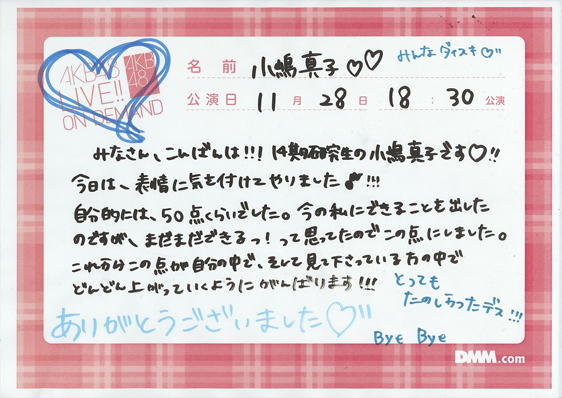 AKB48
LIVE!!
ON DEMAND
AKB
48
名前 小嶋真子♡♡
みんなダイスキ♡
公演日 11月28日 18:30公演
みなさん、こんばんは!!! 14期研究生の小嶋真子です♡!!
今日は、表情に気を付けてやりました♪!!!
自分的には、50点くらいでした。今の私にできることも出した
のですが、まだまだできるっ!って思ってたのでこの点にしました。
これからこの点が自分の中で、そして見て下さっている方の中で
どんどん上がっていくようにがんばります!!!
とっても
たのしかったデス!!!
ありがとうございました♡
Bye Bye
DMM.com